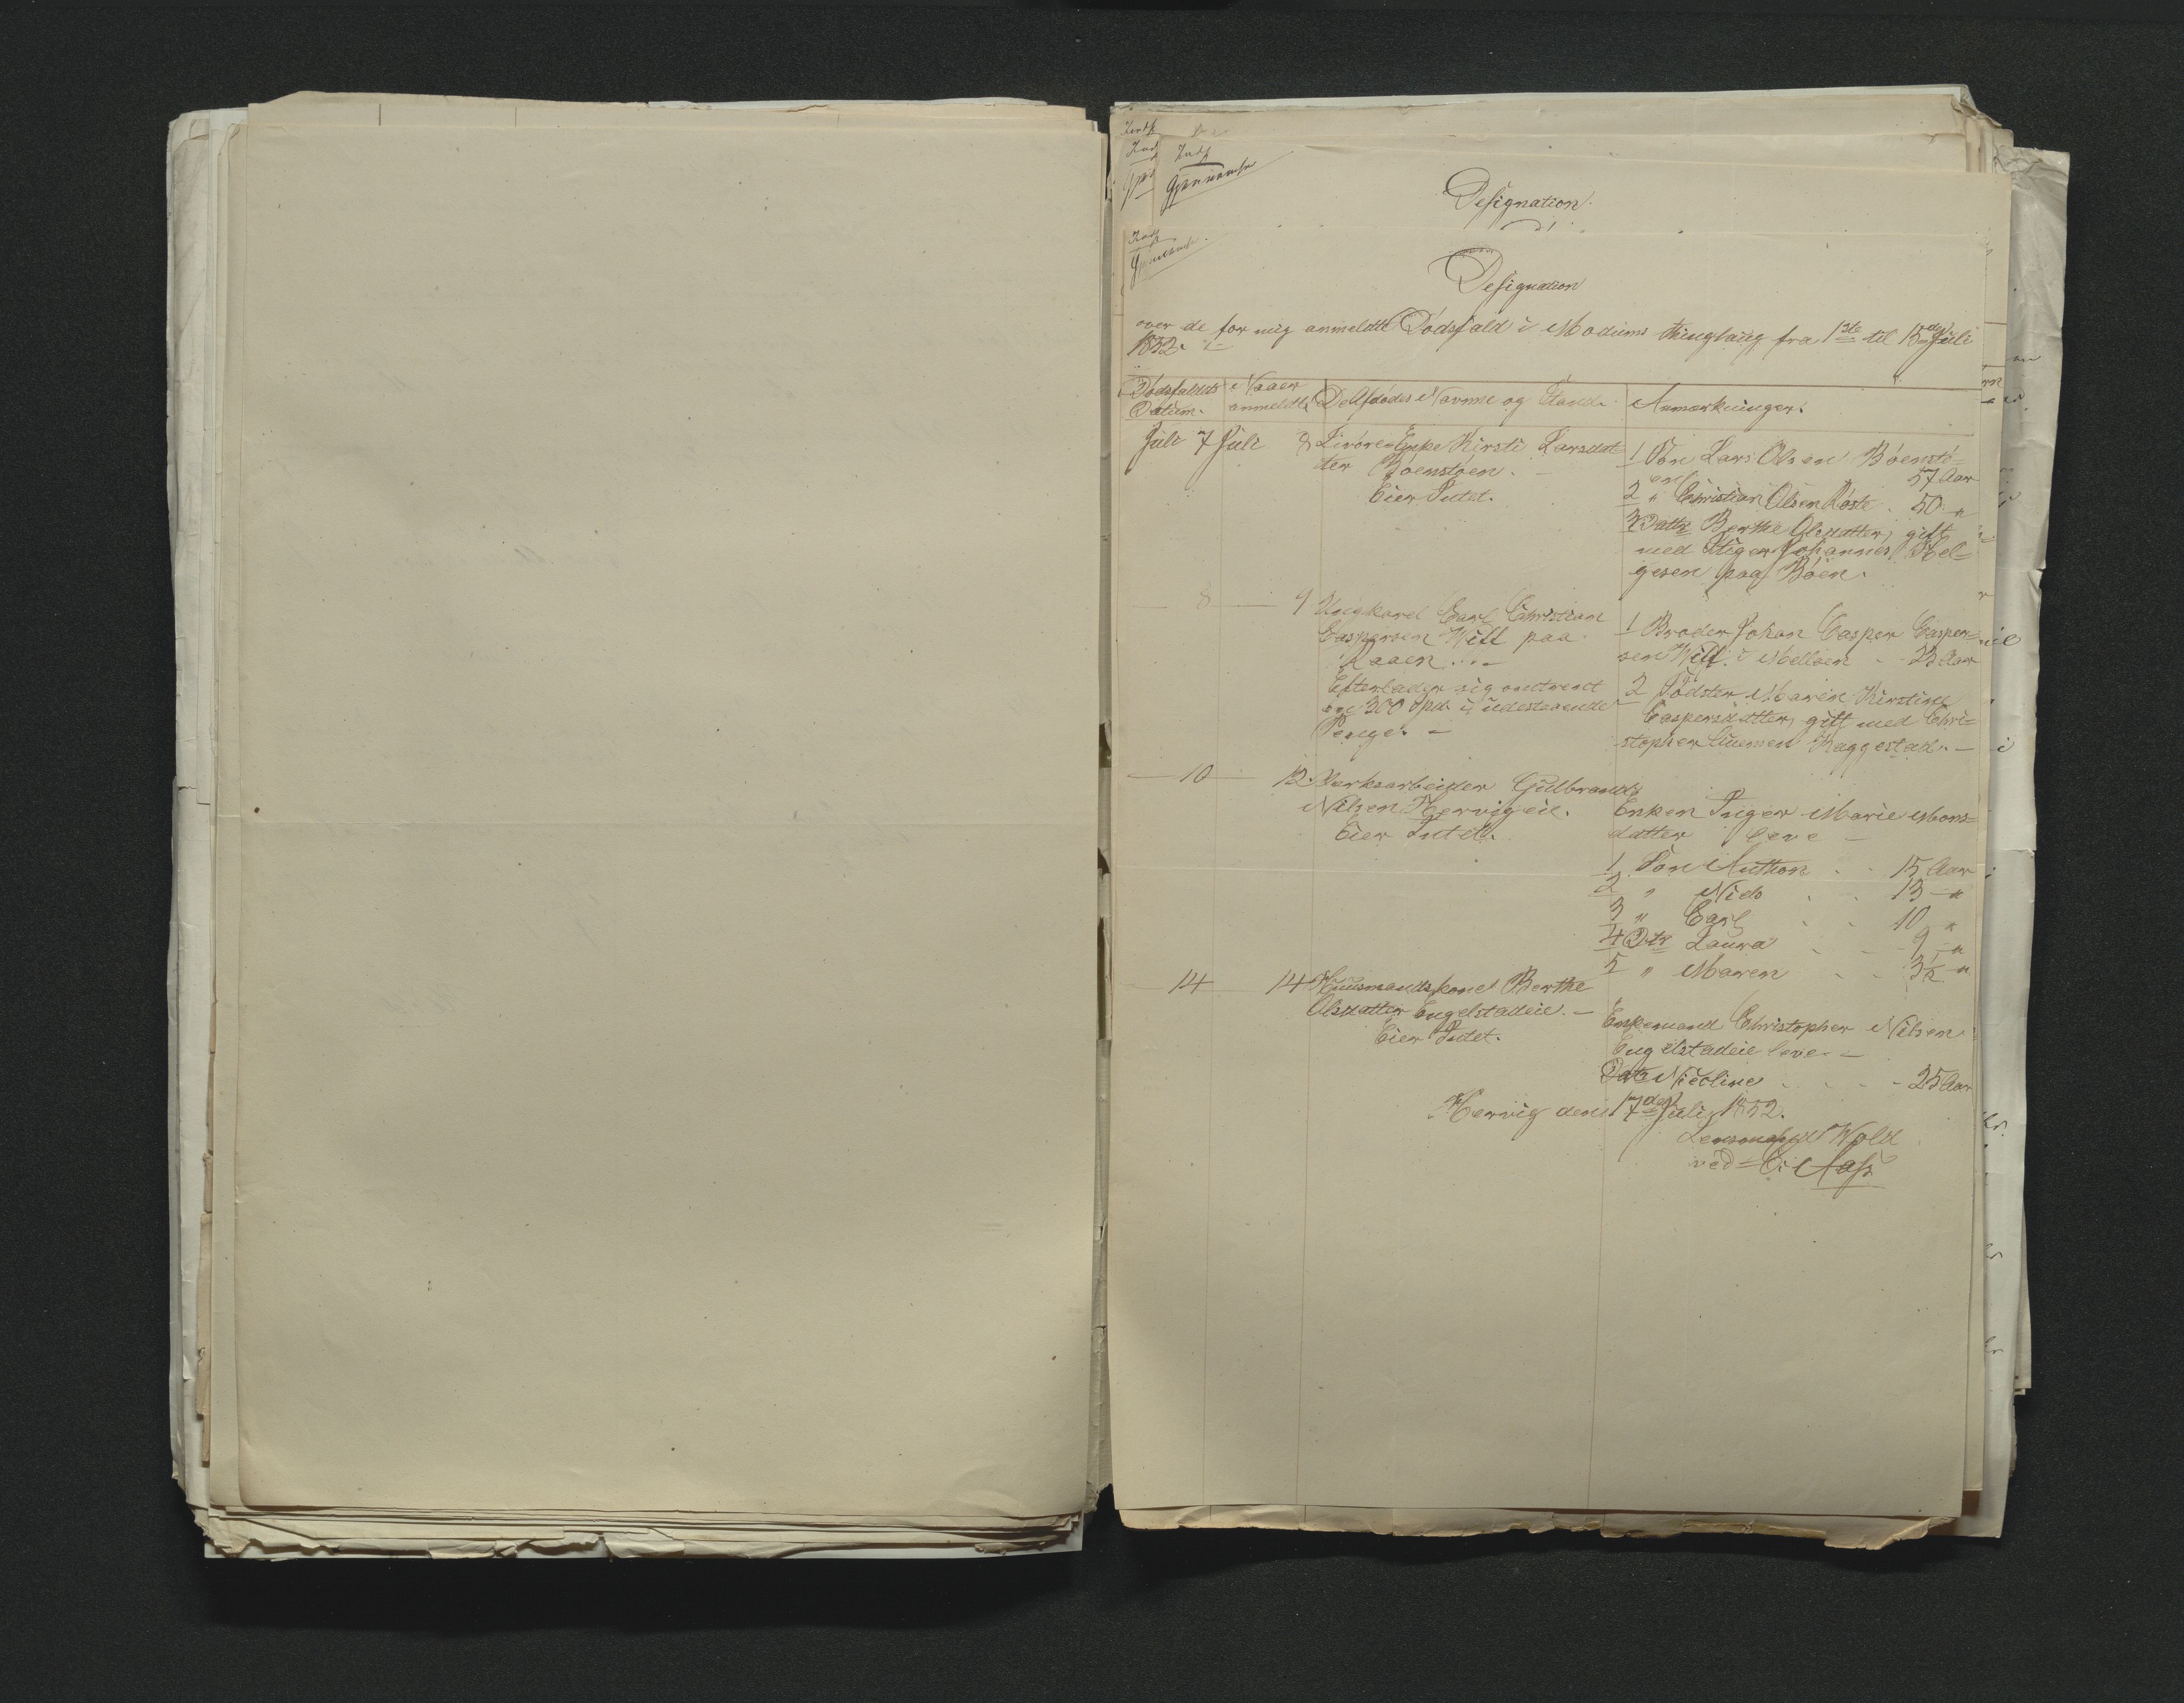 Designation
Designation
over de for mig anmeldte Dødsfald i Modums Thinglaug fra 1ste til 15de Juli
1852.
Dødsfaldets Datum.
Naaer anmeldt.
De Afdødes Navne og Stand.
Anmærkninger.
Juli 7 Juli 8 Livøre-Enke Kirsti Larsdat-
ter Bøenstøen.
Eier Intet.
1 Søn Lars Olsen Bøenstø-
en 57 Aar
2 " Christian Olsen Røste. 50 "
3 Dattr Berthe Olsdatter, gift
med Stiger Johannes Hel-
gesen paa Bøen.
8 9 Ungkarl Carl Christian
Caspersen Will paa
Raaen.
Efterlader sig omtrent
300 Spd. i udestaaende
Penge.
1 Broder Johan Casper Casper-
sen Will i Mellsen 23 Aar
2 Sødster Maren Kirstine
Caspersdatter, gift med Chri-
stopher Raggestad.
10 12 Værksarbeider Gulbrand
Nilsen Hervigeie.
Eier Intet.
Enken Inger Marie Mons-
datter leve
1 Søn Anthon 15 Aar
2 " Niels 13 "
3 " Carl 10 "
4 Dtr Laura 9 "
5 " Maren 3½ "
14 14 Huusmandskone Berthe
Olsdatter Engelstadeie.
Eier Intet.
Enkemand Christopher Nilsen
Engelstadeie leve.
Datr Nicoline 25 Aar
Hervig den 17de Juli 1852.
Lensmand Wold
ved